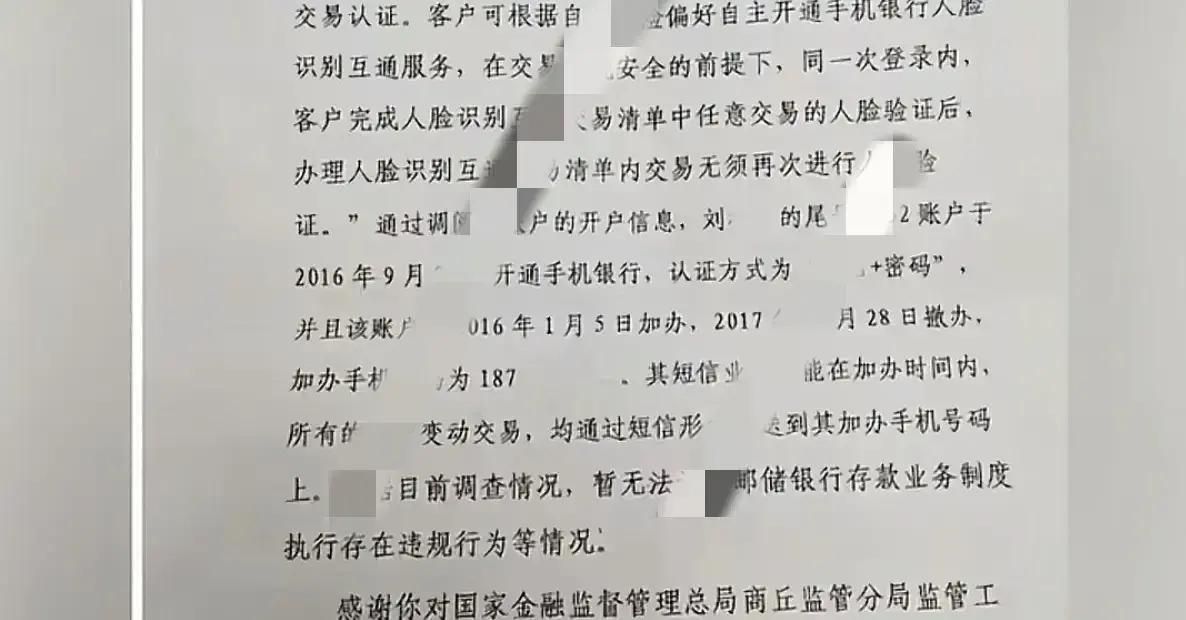 交易认证。客户可根据自 险偏好自主开通手机银行人脸
识别互通服务，在交易 安全的前提下，同一次登录内，
客户完成人脸识别互 交易清单中任意交易的人脸验证后，
办理人脸识别互通 清单内交易无须再次进行人 验
证。”通过调阅 账户的开户信息，刘 的尾 2账户于
2016年9月 开通手机银行，认证方式为 +密码”，
并且该账户 016年1月5日加办，2017 月28日撤办，
加办手机 为187 。其短信业 能在加办时间内，
所有的 变动交易，均通过短信形 送到其加办手机号码
上。 目前调查情况，暂无法 邮储银行存款业务制度
执行存在违规行为等情况。
感谢你对国家金融监督管理总局商丘监管分局监管工